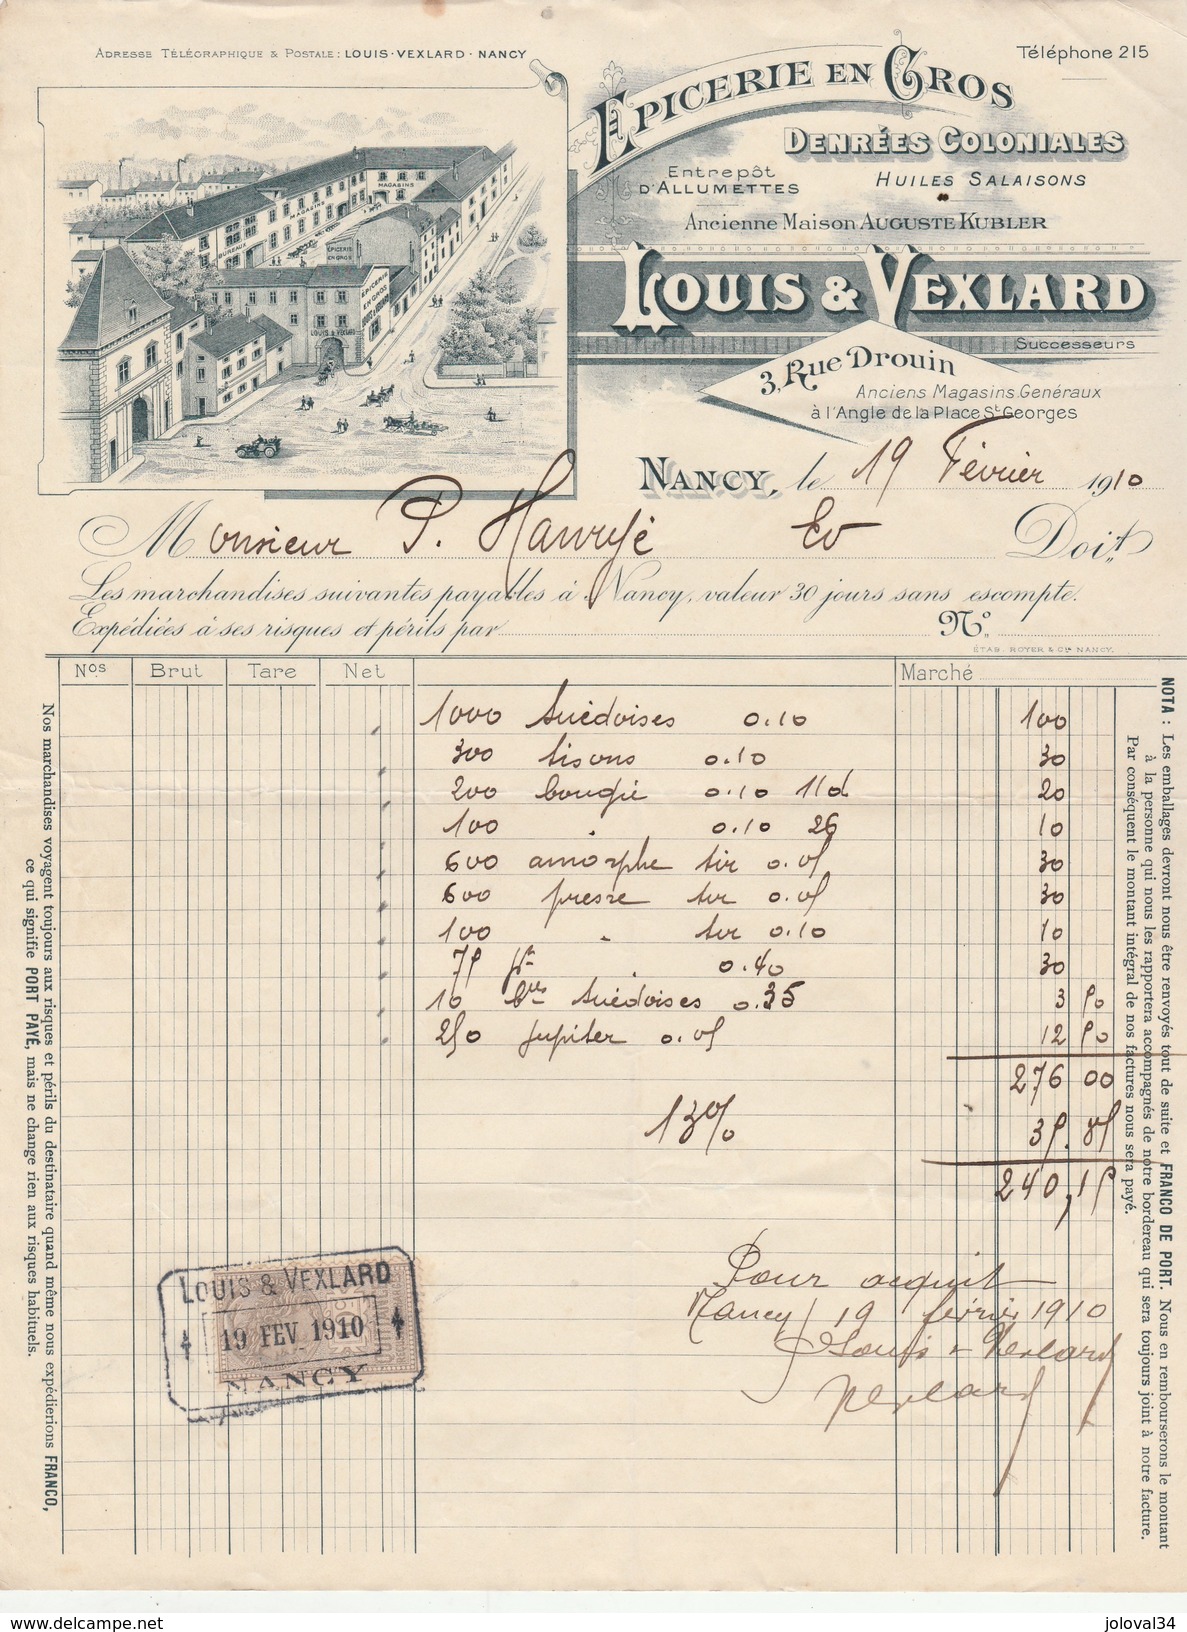 ADRESSE TÉLÉGRAPHIQUE & POSTALE: LOUIS-VEXLARD-NANCY
Téléphone 215
EPICERIE EN GROS
DENRÉES COLONIALES
ENTREPÔT
D'ALLUMETTES
HUILES SALAISONS
Ancienne Maison AUGUSTE KUBLER
LOUIS & VEXLARD
Successeurs
3, RUE DROUIN
Anciens Magasins Genéraux
à l'Angle de la Place St Georges
BUREAUX
MAGASINS
MAGASINS
EPICERIE
EN GROS
EPICERIE
EN GROS
LOUIS & VEXLARD
LOUIS & VEXLARD
NANCY, le 19 Février 1910
Monsieur P. Doit
Les marchandises suivantes payables à Nancy, valeur 30 jours sans escompte.
Expédiées à ses risques et périls par No
ÉTAB. ROYER & Cie NANCY.
Nos Brut Tare Net Marché
1000 Suédoises 0.10 100
300 tisons 0.10 30
200 bougie 0.10 20
100 " 0.10 26 10
600 amorphe tir 0.05 30
600 presse tir 0.05 30
100 " tir 0.10 10
75 " 0.40 30
10 Suédoises 0.35 3 50
250 Jupiter 0.05 12 50
276 00
13% 35.85
240,15
Pour acquit
Nancy 19 février 1910
Louis & Vexlard
Vexlard
LOUIS & VEXLARD
19 FEV 1910
NANCY
Nos marchandises voyagent toujours aux risques et périls du destinataire quand même nous expédierions FRANCO,
ce qui signifie PORT PAYÉ, mais ne change rien aux risques habituels.
NOTA : Les emballages devront nous être renvoyés tout de suite et FRANCO DE PORT. Nous en rembourserons le montant
à la personne qui nous les rapportera accompagnés de notre bordereau qui sera toujours joint à notre facture.
Par conséquent le montant intégral de nos factures nous sera payé.
www.delcampe.net
joloval34